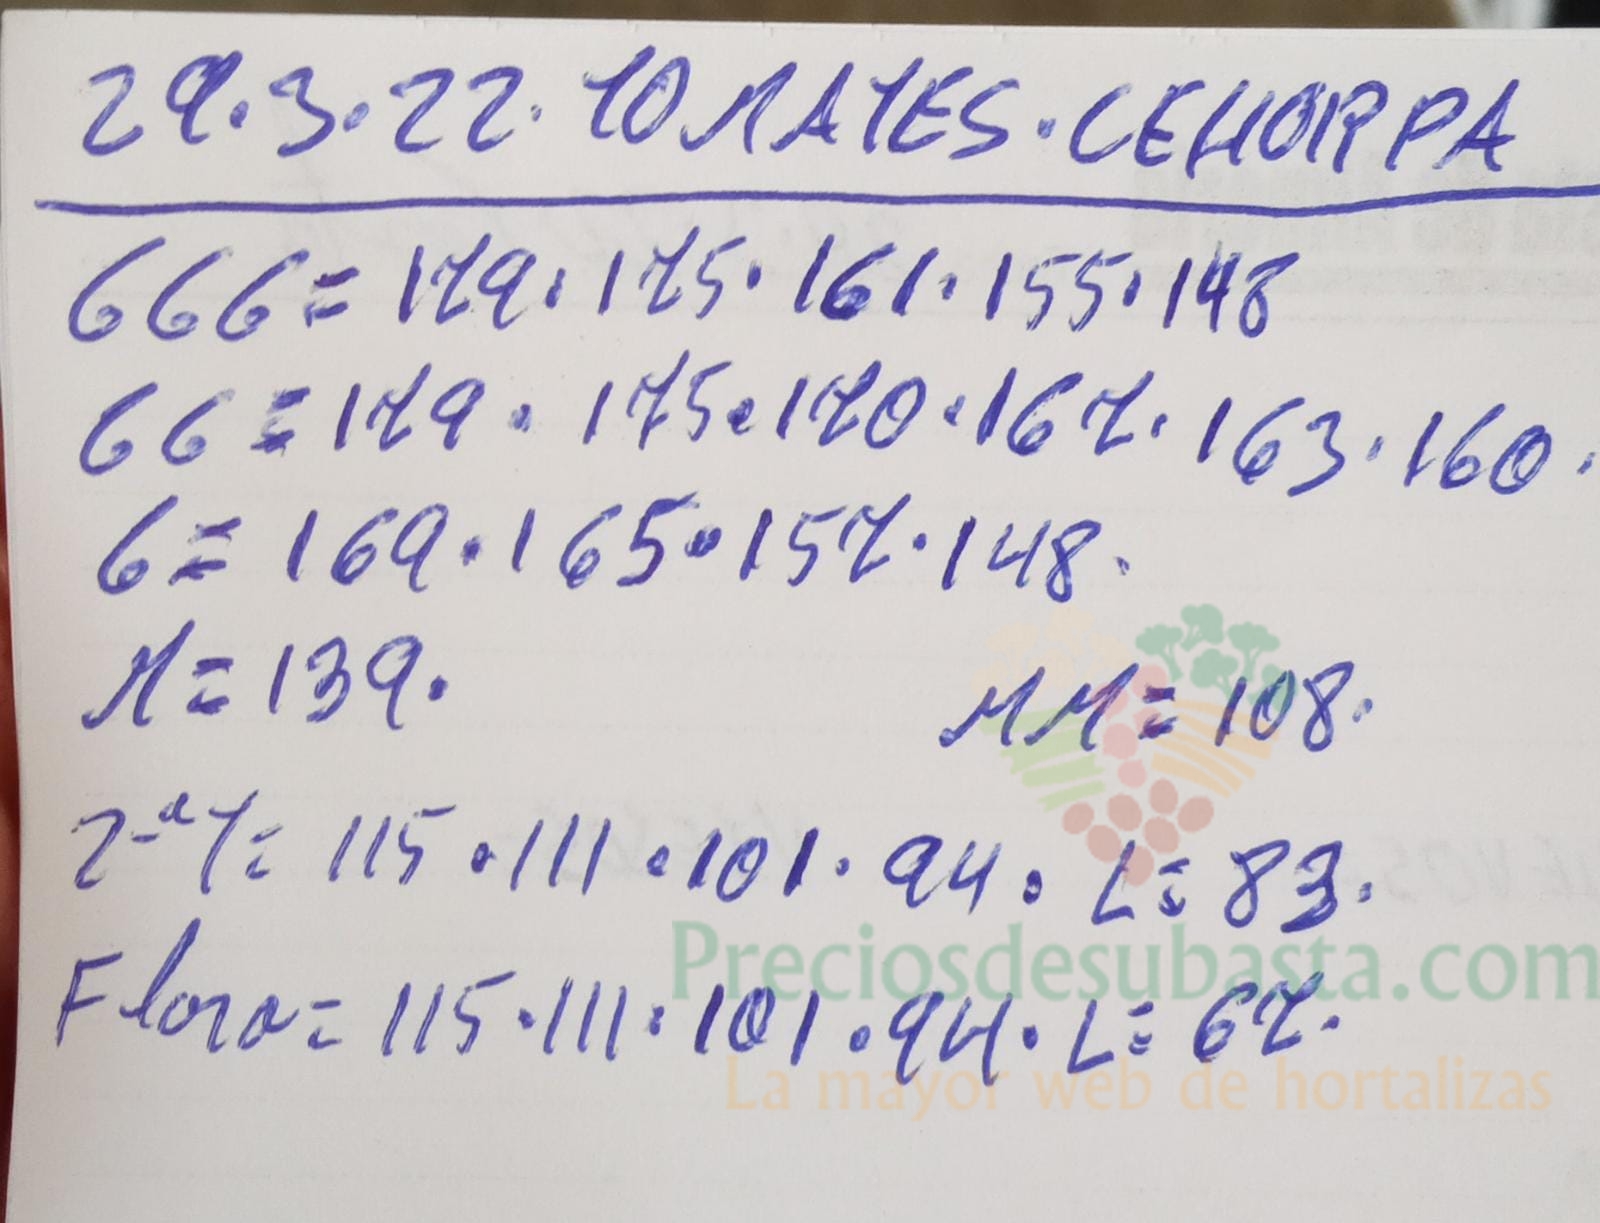 29.3.22. TOMATES. CEHORPA
GGG = 179. 175. 161. 155. 148
GG = 179. 175. 170. 167. 163. 160.
G = 169. 165. 157. 148.
M = 139. MM = 108.
2-ª T = 115. 111. 101. 94. L = 83.
Flora = 115. 111. 101. 94. L = 67.
Preciosdesubasta.com
La mayor web de hortalizas